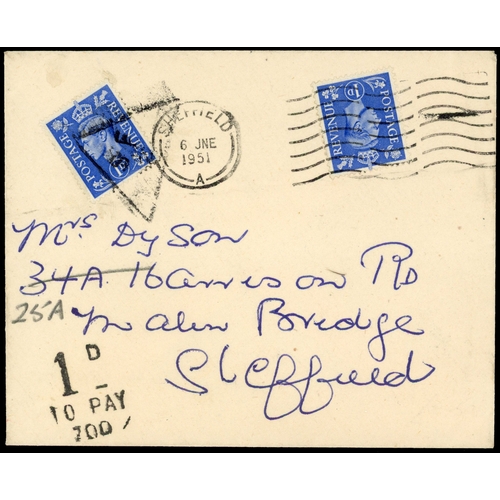 POSTAGE REVENUE 1D
SHEFFIELD
6 JNE
1951
A
REVENUE 1D POSTAGE
Mrs Dyson
34A Harrison Rd
25A
Malin Bridge
Sheffield
1D
TO PAY
700